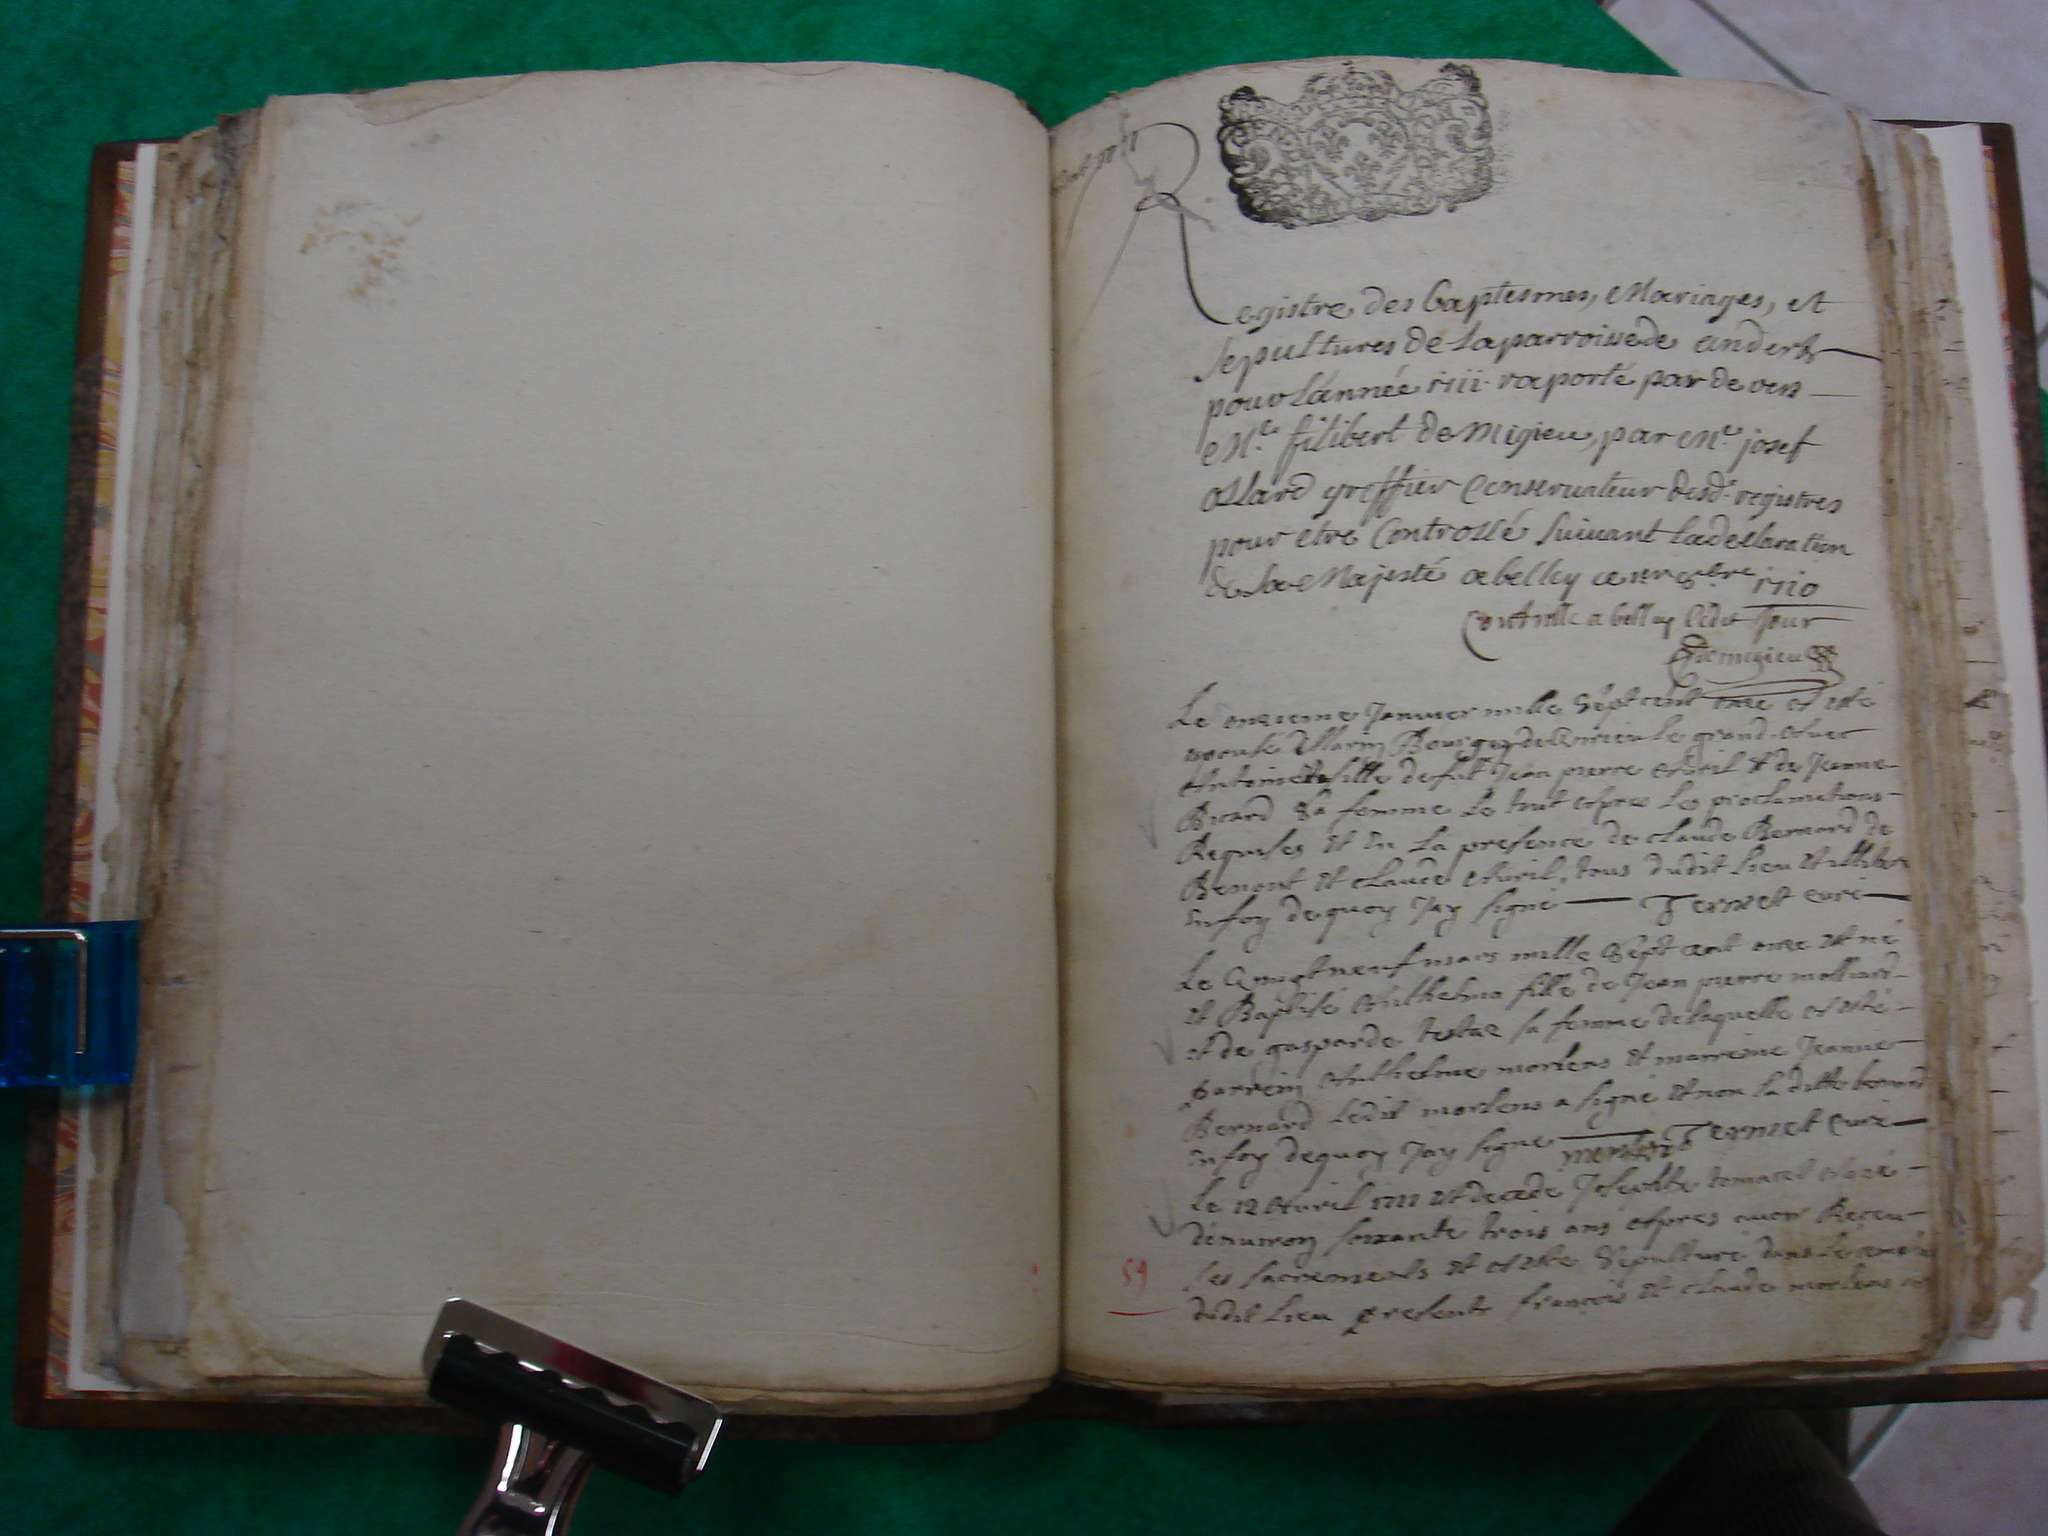 Registre des baptesmes, Mariages, et
sepultures de la parroisse de andert
pour l'année 1711 raporté par de vers
Mre filibert de Migieu, par Me josef
ollard greffier Conservateur desd. registres
pour etre Controllé suivant la declaration
de sa Majesté a belley ce 8bre 1710
Controlle a belley ledit Jour
Demigieu
Le onzieme Janvier mille sept cent onze at esté
Marin Bourgey de le grand avec
Antoinette fille de fut Jean pierre Avril et de Jeanne
Bicard sa femme le tout apres les proclamations
Requises et En la presence de claude Bernard de
Benont et claude Avril, tous dudit lieu et
En foy de quoy Jay signé Ternet curé
Le vingt neuf mars mille sept cent onze est né
et Baptisé Anthelma fille de Jean pierre molliard
et de gasparde testaz sa femme de laquelle at esté
parrein Anthelme morlens et marreine Jeanne
Bernard ledit morlens a signé et non la ditte bernard
En foy de quoy Jay signe morlens Ternet Curé
Le 12 Avril 1711 est decede tomatel agé
d'environ soixante trois ans apres avoir Receu
les sacrements et at esté sepulturé dans le
dudit lieu presents françois et claude morlens
59